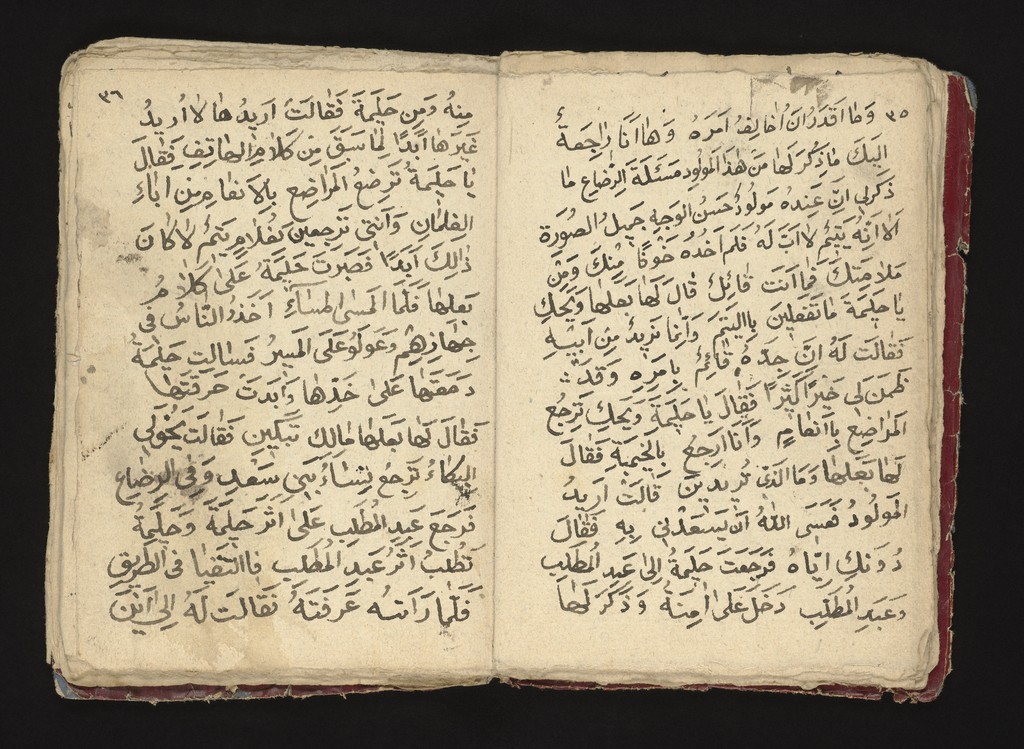 ٣٥
وَمٰا اَقْدَرُ اَنْ اُخٰالِفُ اَمَرَهُ وَهٰا اَنَا رٰاجِعَةٌ
اليكَ مٰا ذِكرَ لهٰا مَن هٰذ المَولود مَسئَلَة الرِضٰاعِ مٰا
ذكَرلي انَّ عَندهُ مَولودُ حَسنُ الوَجهِ جميلُ الصُورَة
الا انَّهُ يَتيمُ لا ابَّ لَهُ فَلَم اَخُدهُ خَوفًا مِنكَ وَمِن
مَلامَتكَ فَمٰا اَنتَ قٰائِلٌ قٰال لَهٰا بَعلهٰا وَيحَكِ
يٰا حَليمَة مٰا تَفعَلين بِااليتيَم وَانمٰا نرَيدُ مِن اَبيْهِ
فَقٰالت لَهُ انَّ جِدَهُ قٰائِمٌ بِامَرِهِ وَقَدْ
ظَمنَ لى خَيرًا كثيرًا فَقٰالَ يٰا حَليمَةَ وَيحَكِ تَرجَعُ
المَرٰاضِع بِاانعٰامٍ وَاَنا ارجعُ بِالخَيبةِ فَقٰالَ
لَهٰا بَعلهٰا وَمٰا الذى تُريدينَ قٰالَتْ اريدُ
المَولودُ فعَسَى اللهُ اَن يسَعدْني بِهِ فَقٰالَ
دُونَكِ ايّاهُ فَرجَعَت حَليمَةُ الىٰ عَبدِ المُطَلب
وَعَبدِ المُطَلِب دَخَلَ عَلىٰ اٰمِنَةُ وَذكَرَ لَهٰا
٣٦
مِنهُ وَمِن حَليمَةَ فَقٰالَتْ اريدُهٰا لا اُريدُ
غَيرَهٰا اَبدًا لِمٰا سَبَقَ مِن كَلامِ الهٰاتِفِ فَقٰالَ
يٰا حَليمَةُ تَرضعُ المَرٰاضِعِ بالانعٰامِ مِن ابٰاءِ
الغِلمٰانِ وَاَنتى تَرجِعينَ بغُلامِ يَتيُمٌ لا كٰانَ
ذٰالِكَ اَبَدًا فَصَبرَت حَليَمةُ عَلىٰ كلامِ
بَعلِهٰا فَلمّا المَسىٰ المسٰاءِ اَخَذُ النّاسُ فى
جهٰازِهُم وَعَولَوُ عَلىَ المَسيرُ فَسٰالتِ حَليَمة
دمَعَتهٰا عَلىٰ خَدِهٰا وَاَبدَت حَرقَتهٰا
فَقٰالَ لَهٰا بَعلهٰا مٰا لِكِ تَبكينِ فَقٰالَت يحُوَلى
البكٰاءُ تَرجعُ نِسٰاءُ بَنى سَعْدٍ وَفى الرضٰاعِ
فَرجَعَ عَبدِ المُطَلبِ عَلىٰ اثَرِ حَليَمةَ وَحَليَمةُ
تَطلبُ اثَرُ عَبدِ المُطَلبِ فٰا التَقيٰا فى الطَريقِ
فَلّمٰا رَاَتهُ عَرفَتهُ فَقٰالَت لَهُ الىٰ اَينَ